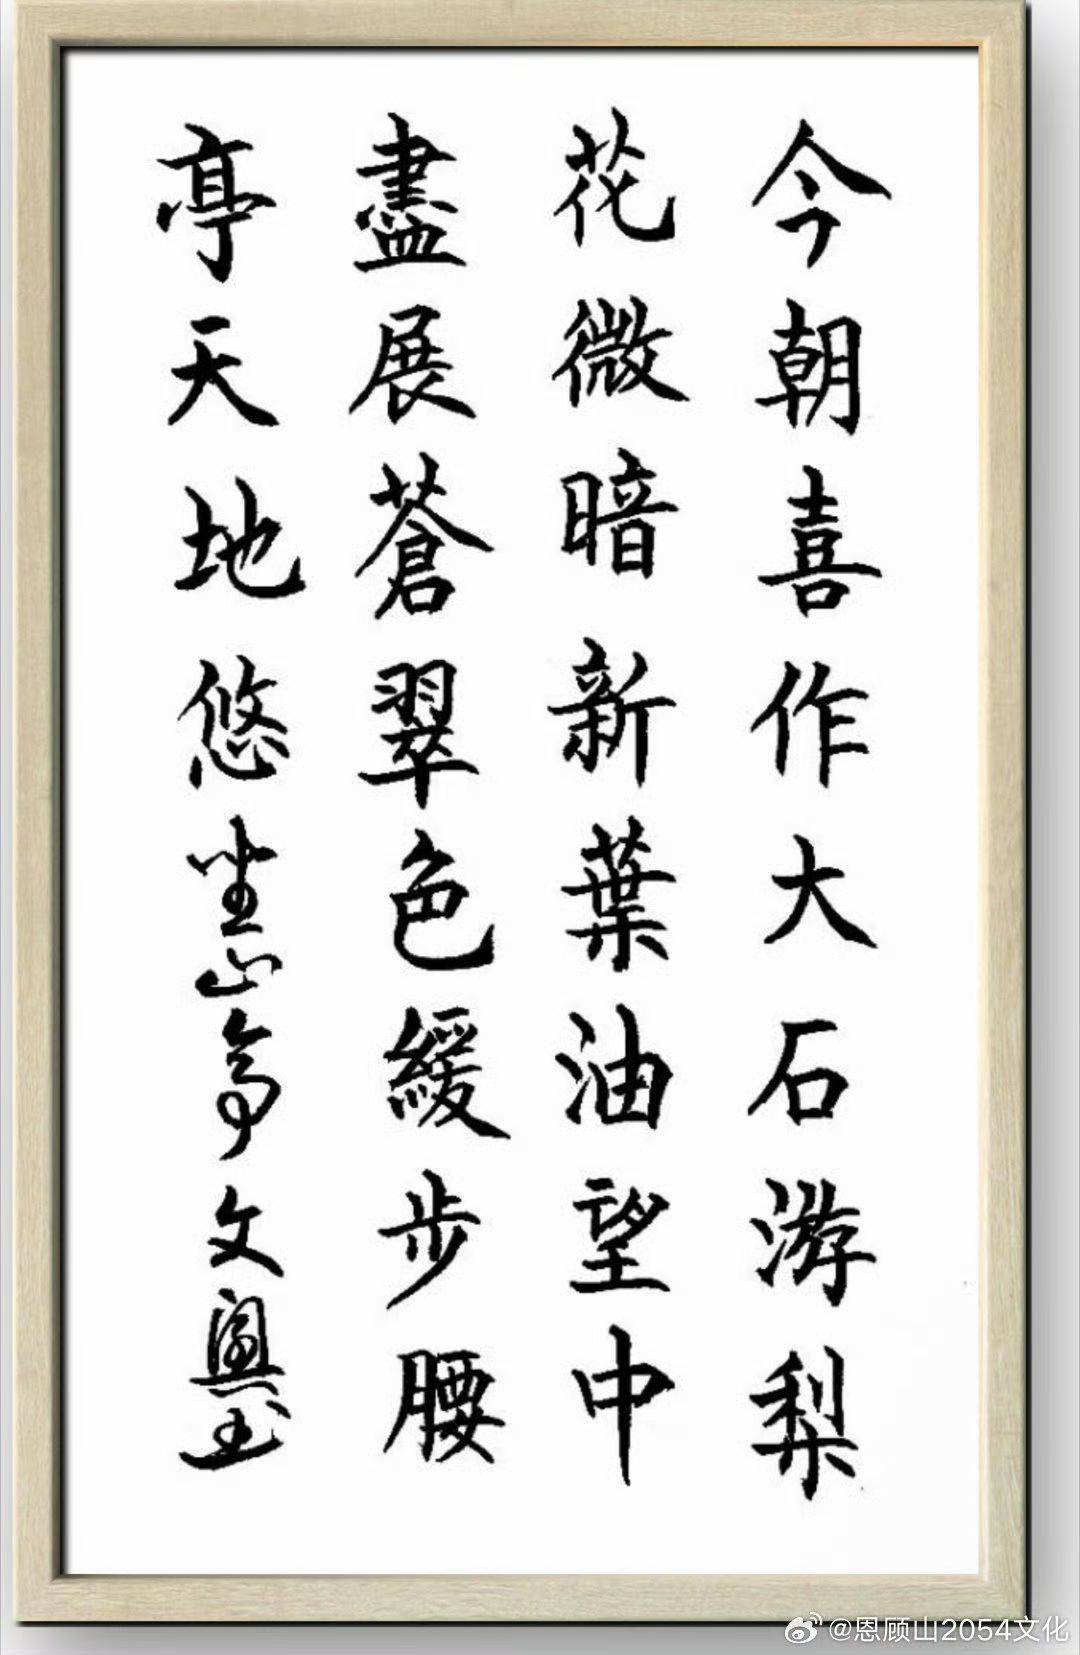 今朝喜作大石游梨
花微暗新葉油望中
盡展蒼翠色緩步腰
亭天地悠坐山亭文興书
@恩顾山2054文化